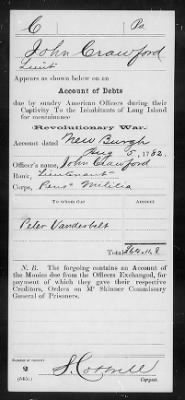 C Pa
John Crawford
Lieut
Appears as shown below on an
Account of Debts
due by sundry American Officers during their
Captivity To the Inhabitants of Long Island
for sustainance
Revolutionary War.
Account dated New Burgh
Aug 5, 1782.
Officer's name, John Crawford
Rank, Lieutenant
Corps, Penns Militia
To whom due Amount
Peter Vanderbilt
Total
N. B. The forgoing contains an Account of
the Monies due from the Officers Exchanged, for
payment of which they gave their respective
Creditors, Orders on Mr Skinner Commissary
General of Prisoners.
Number of Certificate
2
(545)
Copyist.